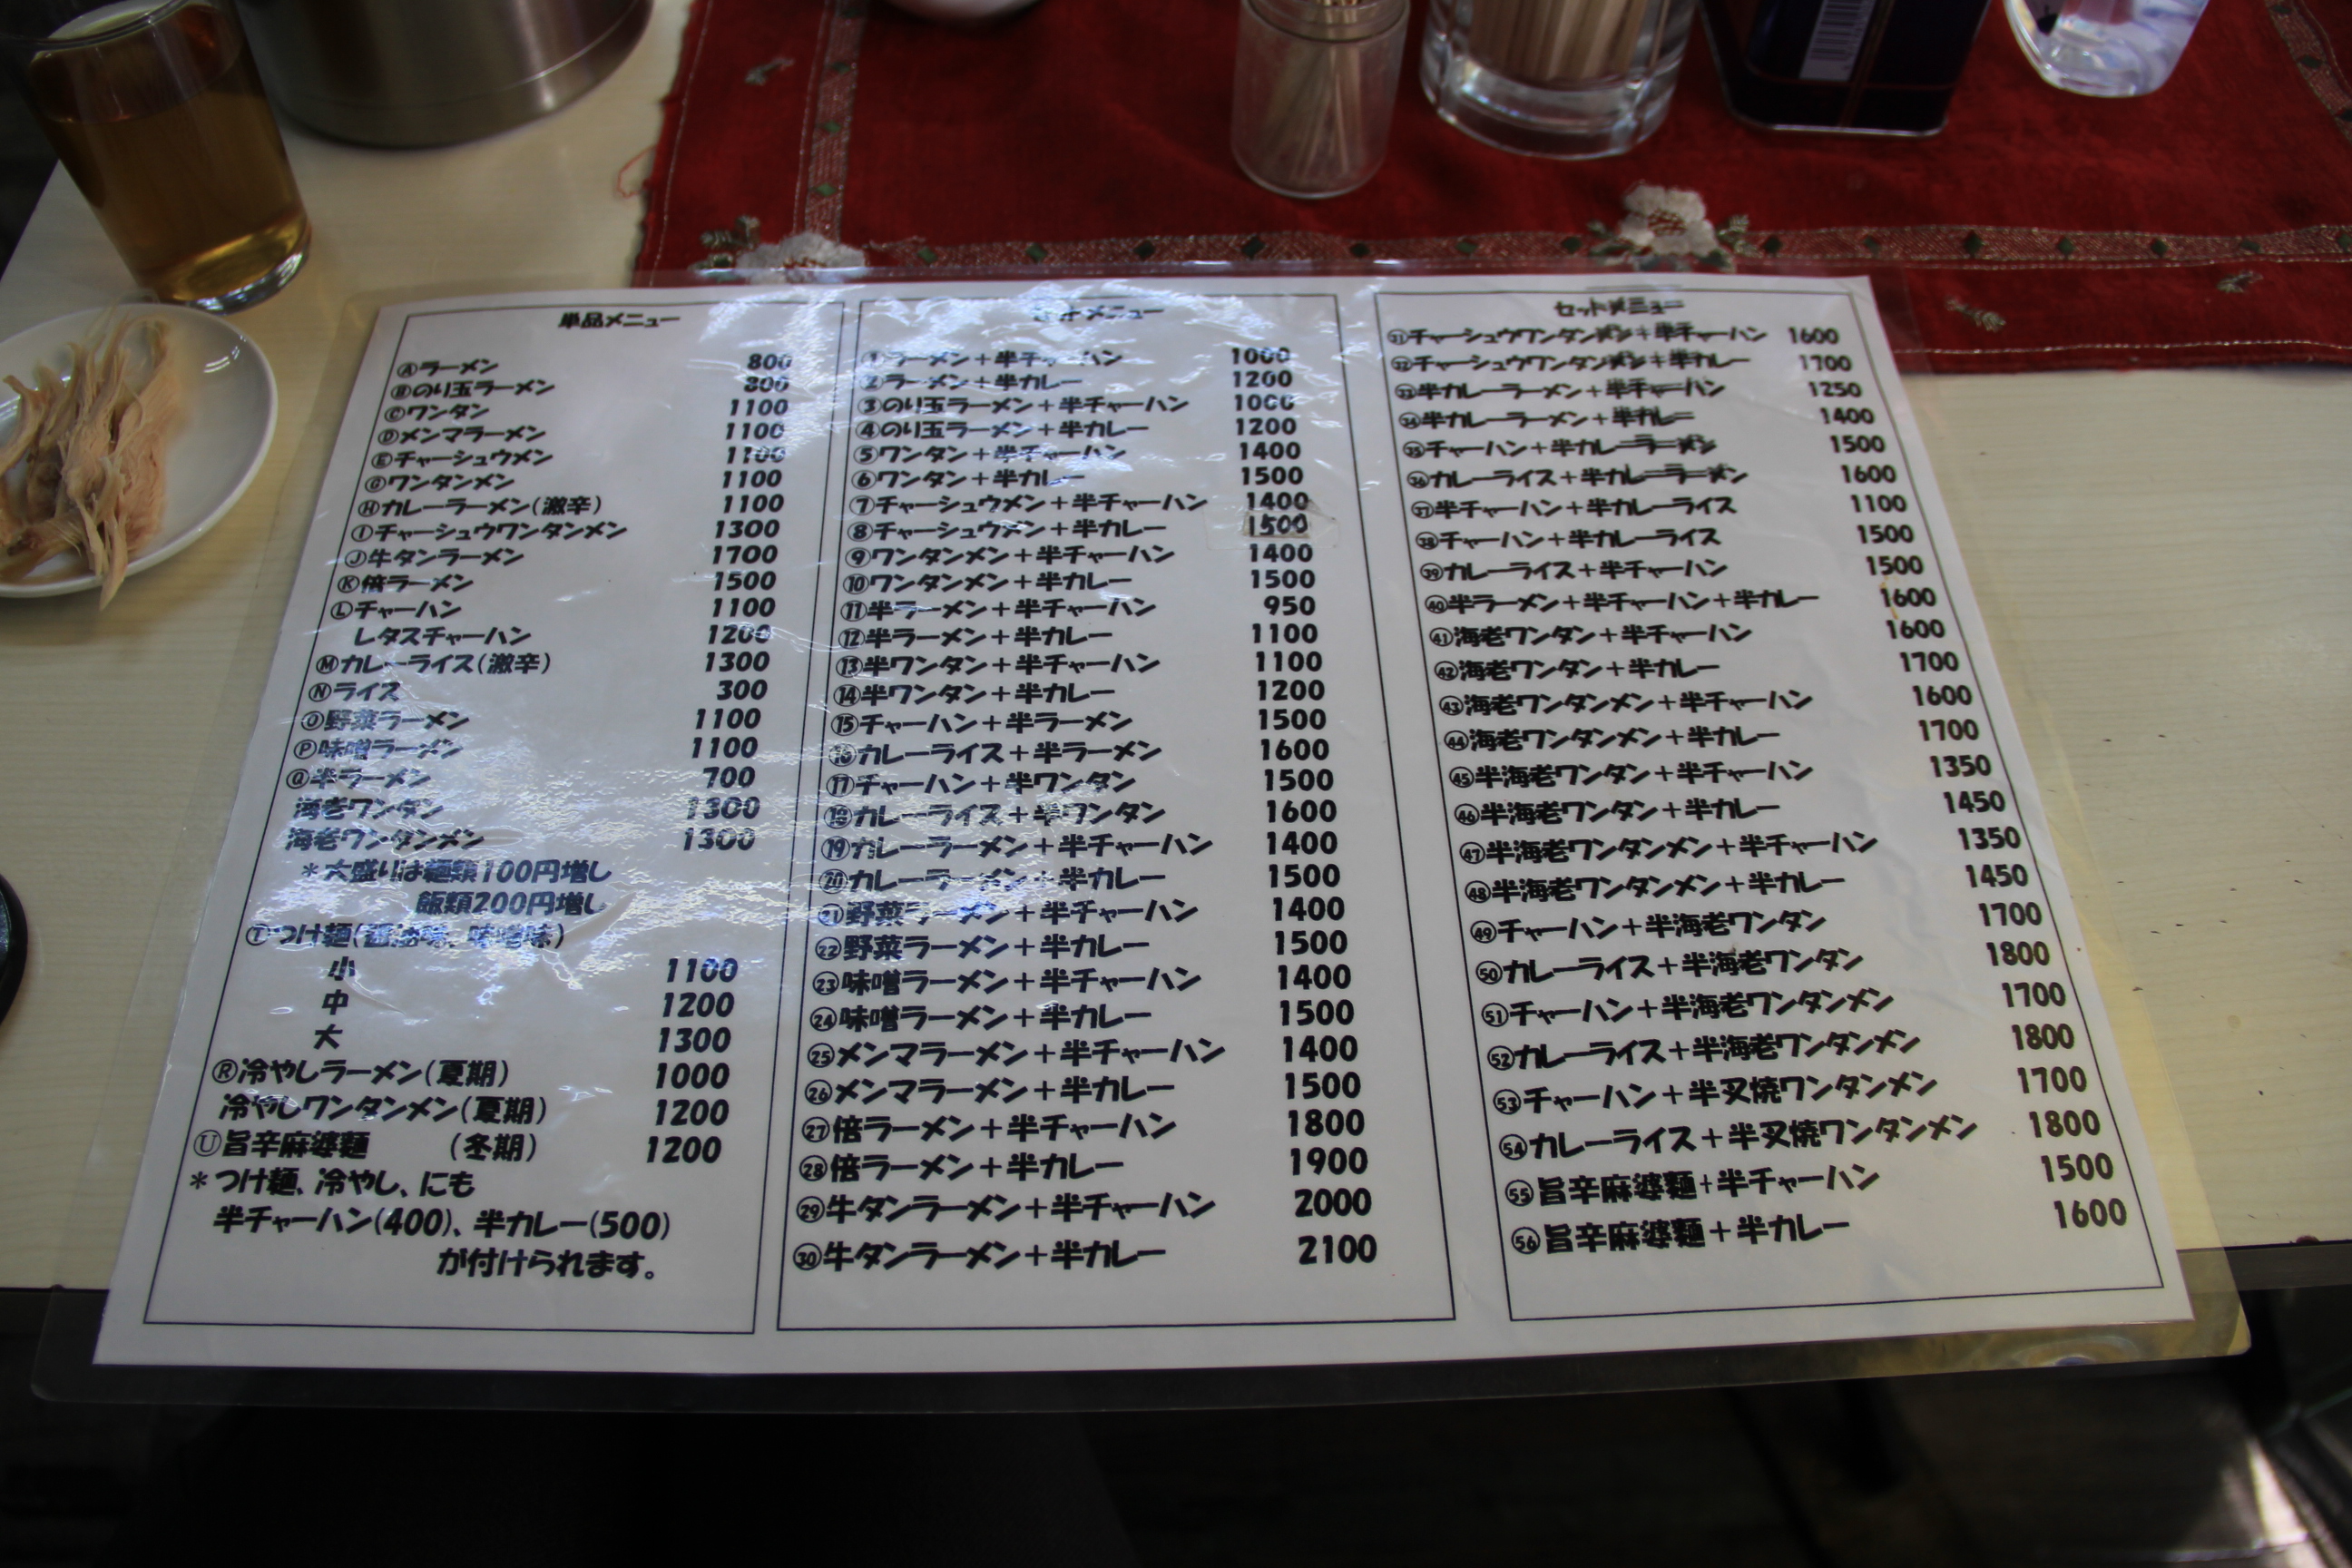 単品メニュー
Ⓐラーメン 800
Ⓑのり玉ラーメン 800
Ⓒワンタン 1100
Ⓓメンマラーメン 1100
Ⓔチャーシュウメン 1100
Ⓖワンタンメン 1100
Ⓗカレーラーメン(激辛) 1100
Ⓘチャーシュウワンタンメン 1300
Ⓙ牛タンラーメン 1700
Ⓚ倍ラーメン 1500
Ⓛチャーハン 1100
レタスチャーハン 1200
Ⓜカレーライス(激辛) 1300
Ⓝライス 300
Ⓞ野菜ラーメン 1100
Ⓟ味噌ラーメン 1100
Ⓠ半ラーメン 700
海老ワンタン 1300
海老ワンタンメン 1300
*大盛りは麺類100円増し
飯類200円増し
Ⓣつけ麺(醤油味、味噌味)
小 1100
中 1200
大 1300
Ⓡ冷やしラーメン(夏期) 1000
冷やしワンタンメン(夏期) 1200
Ⓤ旨辛麻婆麺 (冬期) 1200
*つけ麺、冷やし、にも
半チャーハン(400)、半カレー(500)
が付けられます。
メニュー
①ラーメン+半チャーハン 1000
②ラーメン+半カレー 1200
③のり玉ラーメン+半チャーハン 1000
④のり玉ラーメン+半カレー 1200
⑤ワンタン+半チャーハン 1400
⑥ワンタン+半カレー 1500
⑦チャーシュウメン+半チャーハン 1400
⑧チャーシュウメン+半カレー 1500
⑨ワンタンメン+半チャーハン 1400
⑩ワンタンメン+半カレー 1500
⑪半ラーメン+半チャーハン 950
⑫半ラーメン+半カレー 1100
⑬半ワンタン+半チャーハン 1100
⑭半ワンタン+半カレー 1200
⑮チャーハン+半ラーメン 1500
⑯カレーライス+半ラーメン 1600
⑰チャーハン+半ワンタン 1500
⑱カレーライス+半ワンタン 1600
⑲カレーラーメン+半チャーハン 1400
⑳カレーラーメン+半カレー 1500
㉑野菜ラーメン+半チャーハン 1400
㉒野菜ラーメン+半カレー 1500
㉓味噌ラーメン+半チャーハン 1400
㉔味噌ラーメン+半カレー 1500
㉕メンマラーメン+半チャーハン 1400
㉖メンマラーメン+半カレー 1500
㉗倍ラーメン+半チャーハン 1800
㉘倍ラーメン+半カレー 1900
㉙牛タンラーメン+半チャーハン 2000
㉚牛タンラーメン+半カレー 2100
セットメニュー
㉛チャーシュウワンタンメン+半チャーハン 1600
㉜チャーシュウワンタンメン+半カレー 1700
㉝半カレーラーメン+半チャーハン 1250
㉞半カレーラーメン+半カレー 1400
㉟チャーハン+半カレーラーメン 1500
㊱カレーライス+半カレーラーメン 1600
㊲半チャーハン+半カレーライス 1100
㊳チャーハン+半カレーライス 1500
㊴カレーライス+半チャーハン 1500
㊵半ラーメン+半チャーハン+半カレー 1600
㊶海老ワンタン+半チャーハン 1600
㊷海老ワンタン+半カレー 1700
㊸海老ワンタンメン+半チャーハン 1600
㊹海老ワンタンメン+半カレー 1700
㊺半海老ワンタン+半チャーハン 1350
㊻半海老ワンタン+半カレー 1450
㊼半海老ワンタンメン+半チャーハン 1350
㊽半海老ワンタンメン+半カレー 1450
㊾チャーハン+半海老ワンタン 1700
㊿カレーライス+半海老ワンタン 1800
51チャーハン+半海老ワンタンメン 1700
52カレーライス+半海老ワンタンメン 1800
53チャーハン+半叉焼ワンタンメン 1700
54カレーライス+半叉焼ワンタンメン 1800
55旨辛麻婆麺+半チャーハン 1500
56旨辛麻婆麺+半カレー 1600